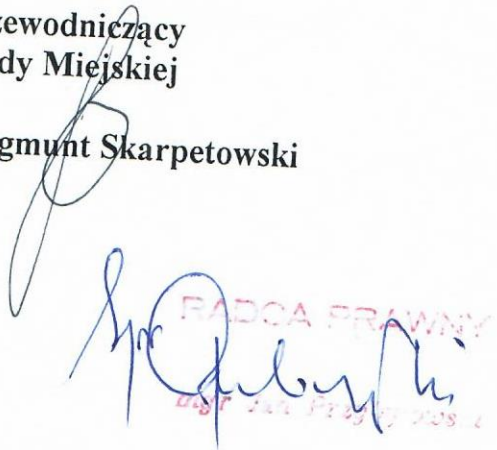 zewodniczący
dy Miejskiej
gmunt Skarpetowski
RADCA PRAWNY
mgr Jan